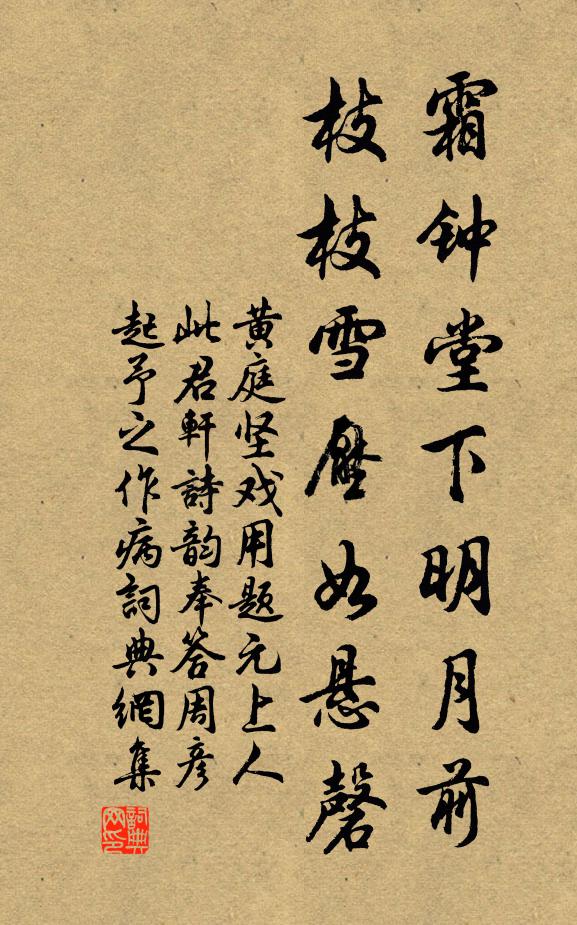 霜钟堂下明月前
枝枝雪压如悬磬
黄庭坚戏用题元上人
此君軒詩韵奉答周彦
起予之作病詞典網集
詞典网印